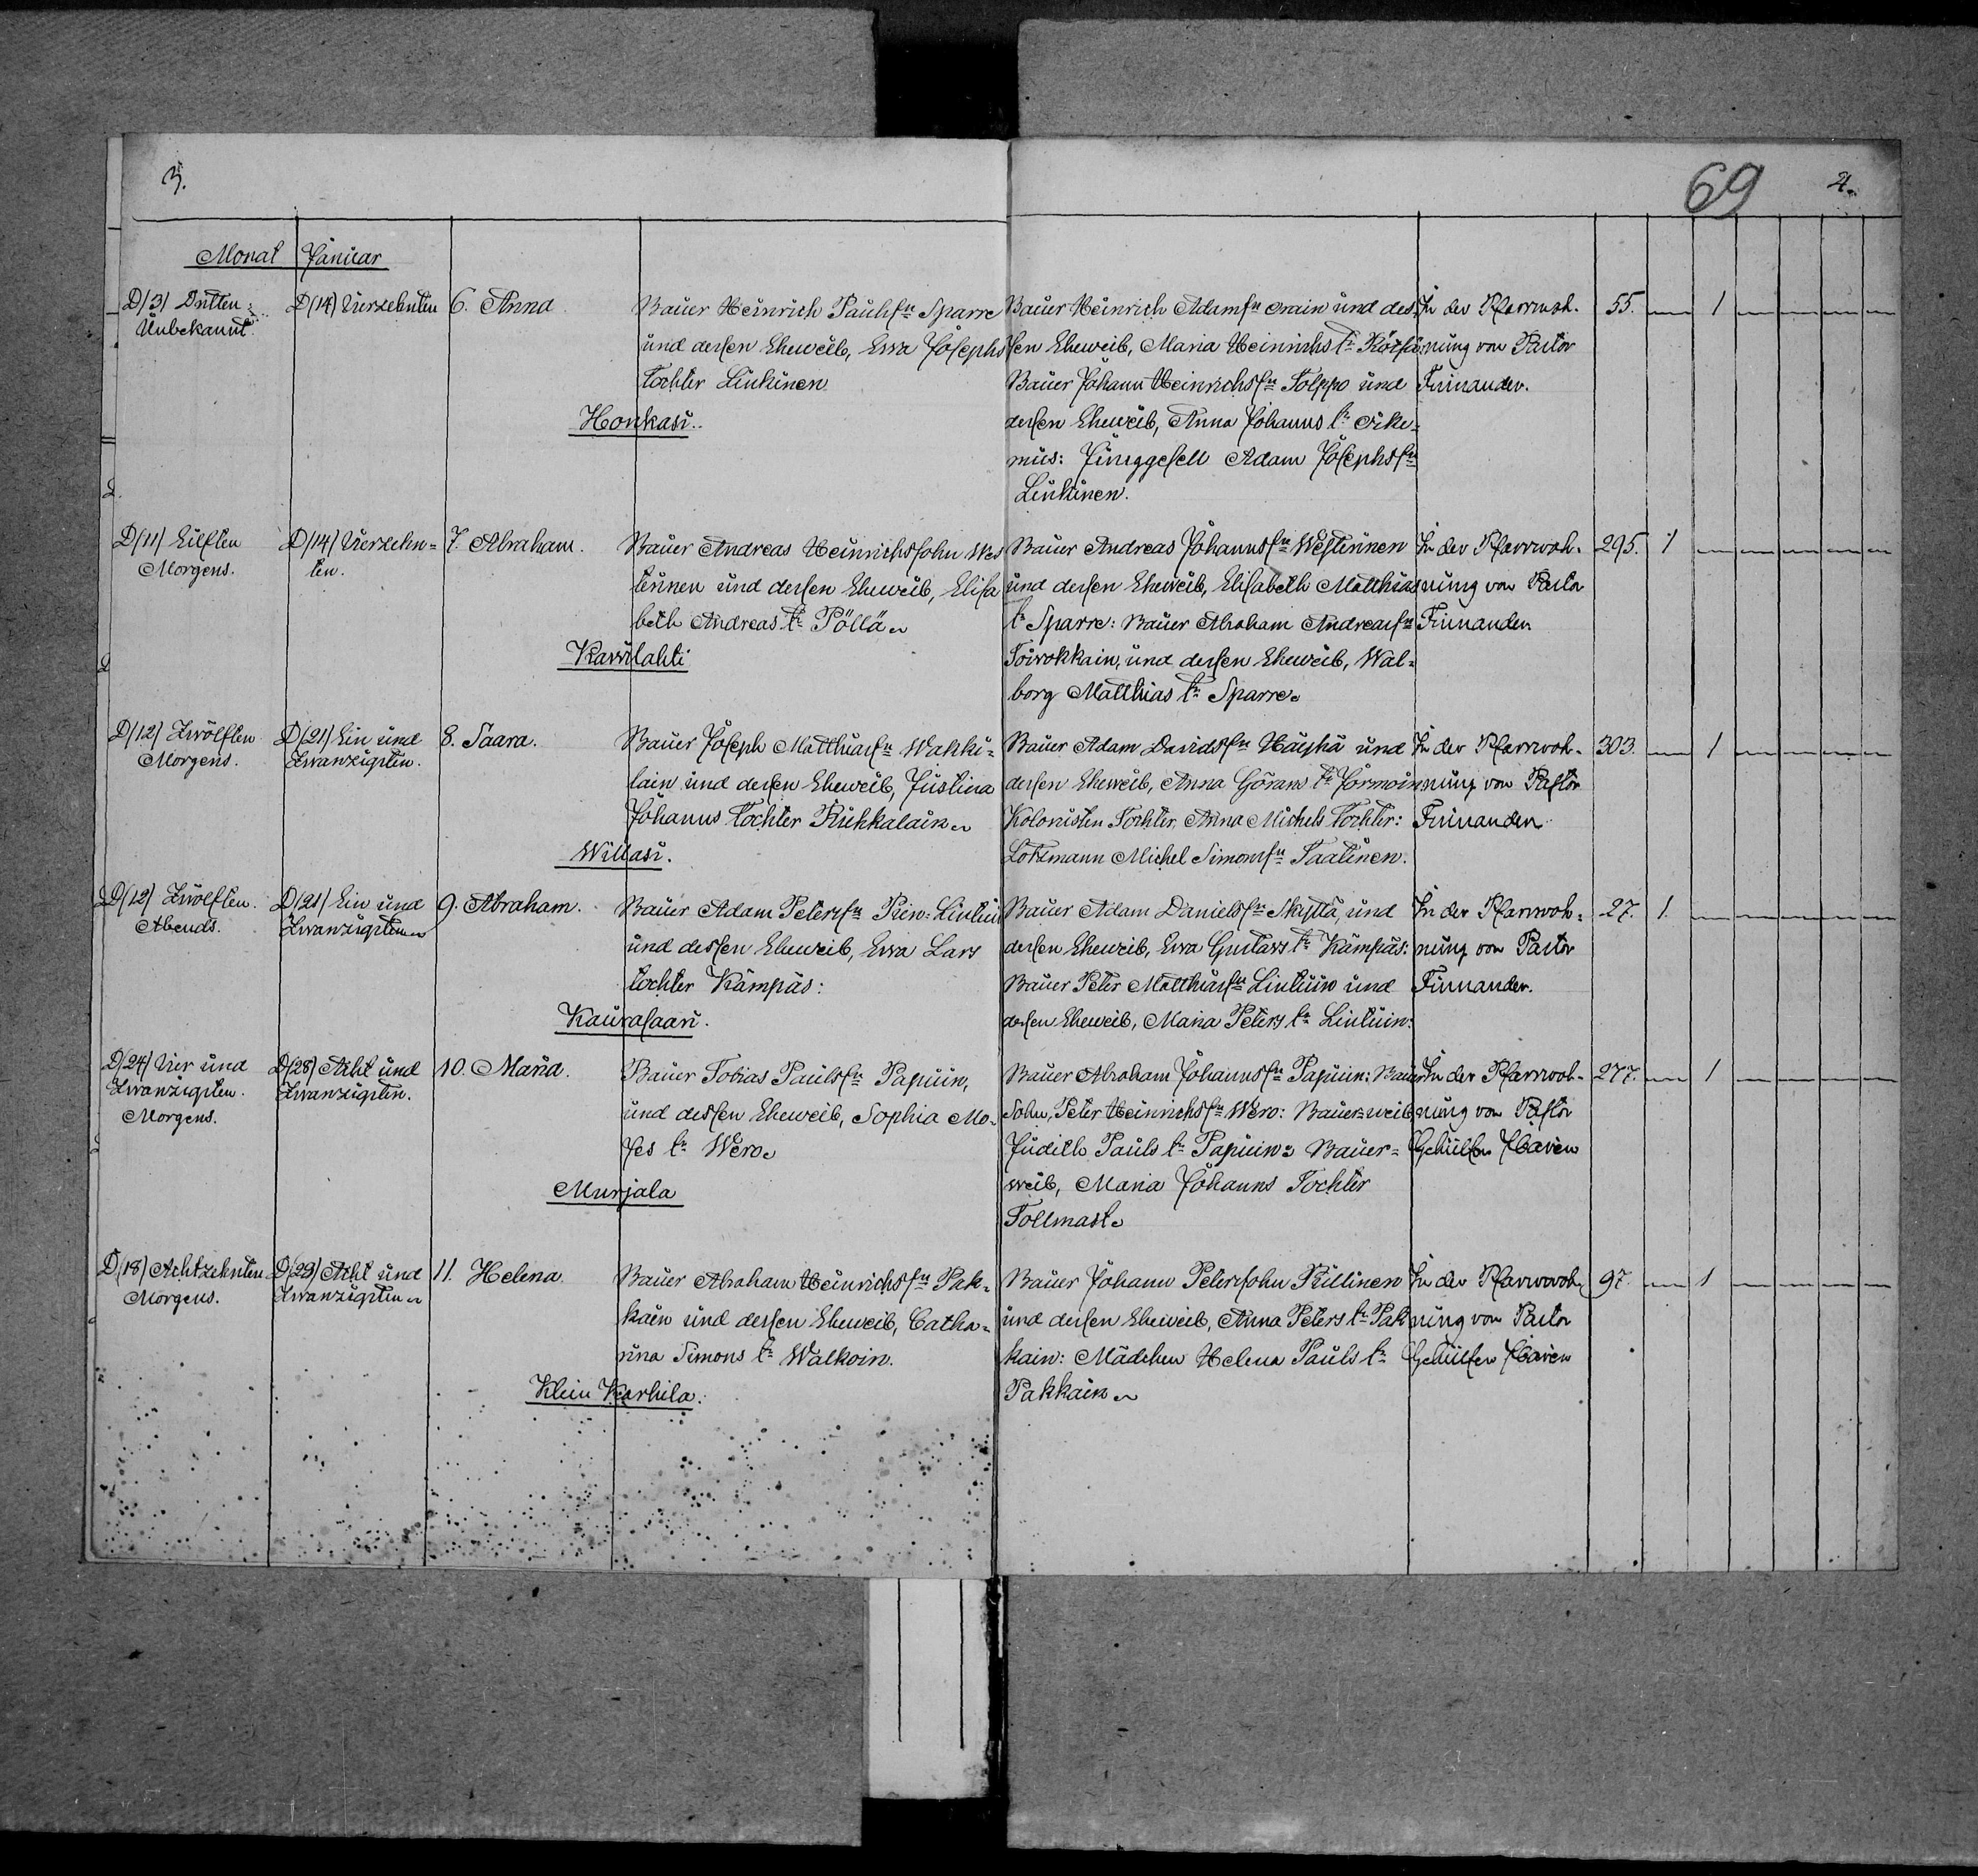 3.
69
4.
Monat Januar
D/3/ Dritten:
Unbekannt.
D/14/ Vierzehnten
6. Anna.
Bauer Heinrich Paulsſn Sparre
und deſsen Eheweib, Ewa Joſephs
tochter Liukinen
Honkasi.
Bauer Heinrich Adamſn und deſ-
ſen Eheweib, Maria Heinrichs tr
Bauer Johann Heinrichsſn Tolppo und
deſsen Eheweib, Anna Johanns tr
mus: Junggeſell Adam Joſephsſn
Liukinen.
In der Pfarrwoh-
nung von Pastor
Firnander.
55. — 1 — — — —
D/11/ Eilften
Morgens.
D/14/ Vierzehn-
ten.
7. Abraham.
Bauer Andreas Heinrichsſohn Wes
tinnen und deſsen Eheweib, Eliſa
beth Andreas tr Pöllä
Kavvilahti
Bauer Andreas Johannsſn Weſtinnen
und deſsen Eheweib, Eliſabeth Matthias
tr Sparre: Bauer Abraham Andreasſn
Toivokkain, und deſsen Eheweib, Wal-
borg Matthias tr Sparre.
In der Pfarrwoh-
nung von Pastor
Firnander
295. 1 — — — — —
D/12/ Zwölften
Morgens.
D/21/ Ein und
Zwanzigsten.
8. Saara.
Bauer Joſeph Matthiasſn Wakki-
lain und deſsen Eheweib, Justina
Johanns tochter Kukkalain
Willasi.
Bauer Adam Davidsſn Häyhä und
deſsen Eheweib, Anna Görans tr Jormoin
Kolonisten Tochter, Anna Michels Tochter:
Lotsmann Michel Simonsſn Taatinen.
In der Pfarrwoh-
nung von Paſtor
Firnander
303. — 1 — — — —
D/12/ Zwölften.
Abends.
D/21/ Ein und
Zwanzigsten
9. Abraham.
Bauer Adam Petersſn Pien: Lintuin
und deſsen Eheweib, Ewa Lars
tochter Kämpäs:
Kauraſaari.
Bauer Adam Danielsſn Skyttä, und
deſsen Eheweib, Ewa Gustavs tr Kämpäs:
Bauer Peter Matthiasſn Lintuin und
deſsen Eheweib, Maria Peters tr Lintuin:
In der Pfarrwoh-
nung von Pastor
Firnander.
27. 1. — — — — —
D/24/ Vier und
Zwanzigsten.
Morgens.
D/28/ Acht und
Zwanzigsten.
10. Maria.
Bauer Tobias Paulsſn Papuin,
und deſsen Eheweib, Sophia Mo-
ſes tr Wero.
Murjala
Bauer Abraham Johannsſn Papuin: Bauer
Sohn, Peter Heinrichsſn Wero: Bauerweib
Judith Pauls tr Papuin: Bauer-
weib, Maria Johanns Tochter
Tollmast.
In der Pfarrwoh-
nung von Paſtor
Gehülfen
277. — 1 — — — —
D/18/ Achtzehnten
Morgens.
D/28/ Acht und
Zwanzigsten
11. Helena.
Bauer Abraham Heinrichsſn Pak-
kain und deſsen Eheweib, Catha-
rina Simons tr Walkoin.
Klein Karhila.
Bauer Johann Petersſohn Killinen
und deſsen Eheweib, Anna Peters tr Pak
kain: Mädchen Helena Pauls tr
Pakkain
In der Pfarrwoh-
nung von Pastor
Gehülfen
97. — 1 — — — —